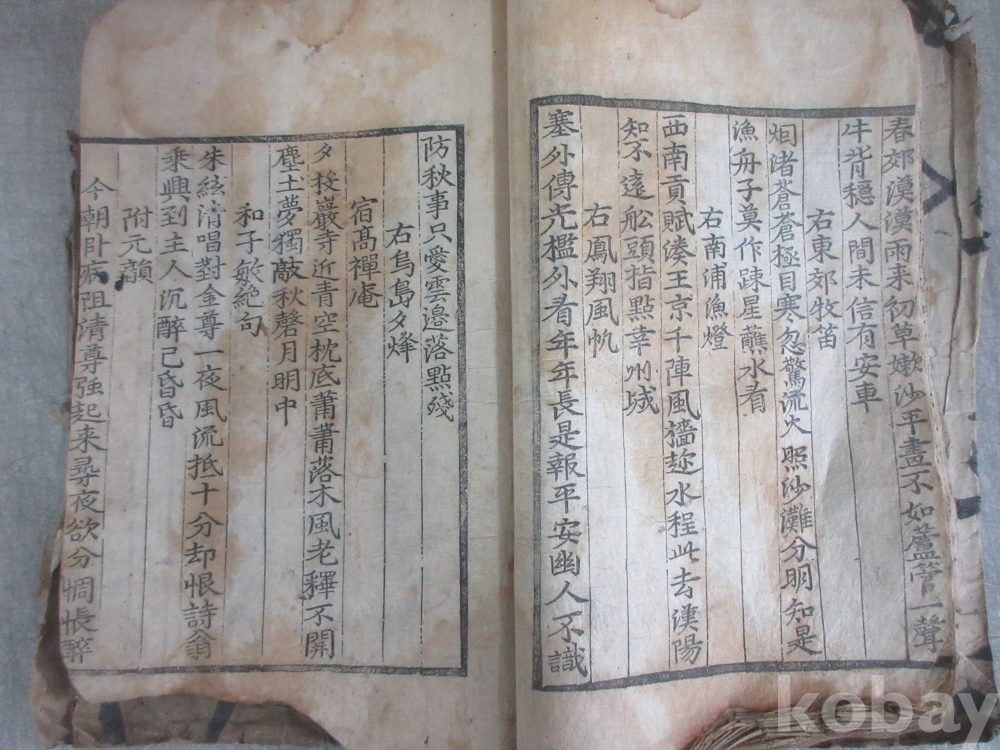 春郊漠漠雨来初草嫰沙平晝不如蘆管一聲
牛背穩人間未信有安車
右東郊牧笛
烟渚蒼蒼極目寒忽驚流火照沙灘分明知是
漁舟子莫作踈星蘸水看
右南浦漁燈
西南貢賦湊王京千陣風檣趂水程此去漢陽
知不遠舩頭指點幸州城
右鳳翔風帆
塞外傳光檻外看年年長是報平安幽人不識
防秋事只愛雲邊落點殘
右烏島夕烽
宿髙禪庵
夕投巖寺近青空枕底蕭蕭落木風老釋不開
塵土夢獨敲秋磬月明中
和子敏絶句
朱絃清唱對金尊一夜風流抵十分却恨詩翁
乘興到主人沉醉已昏昏
附元韻
今朝卧病阻清尊强起来尋夜欲分惆悵醉
kobay